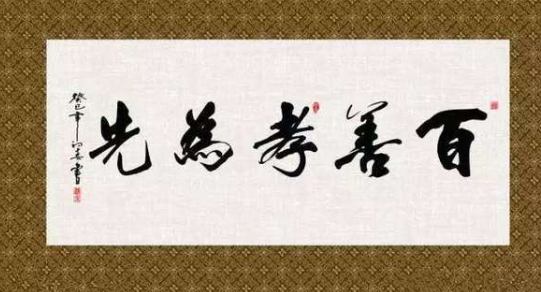 百善孝為先
癸巳年